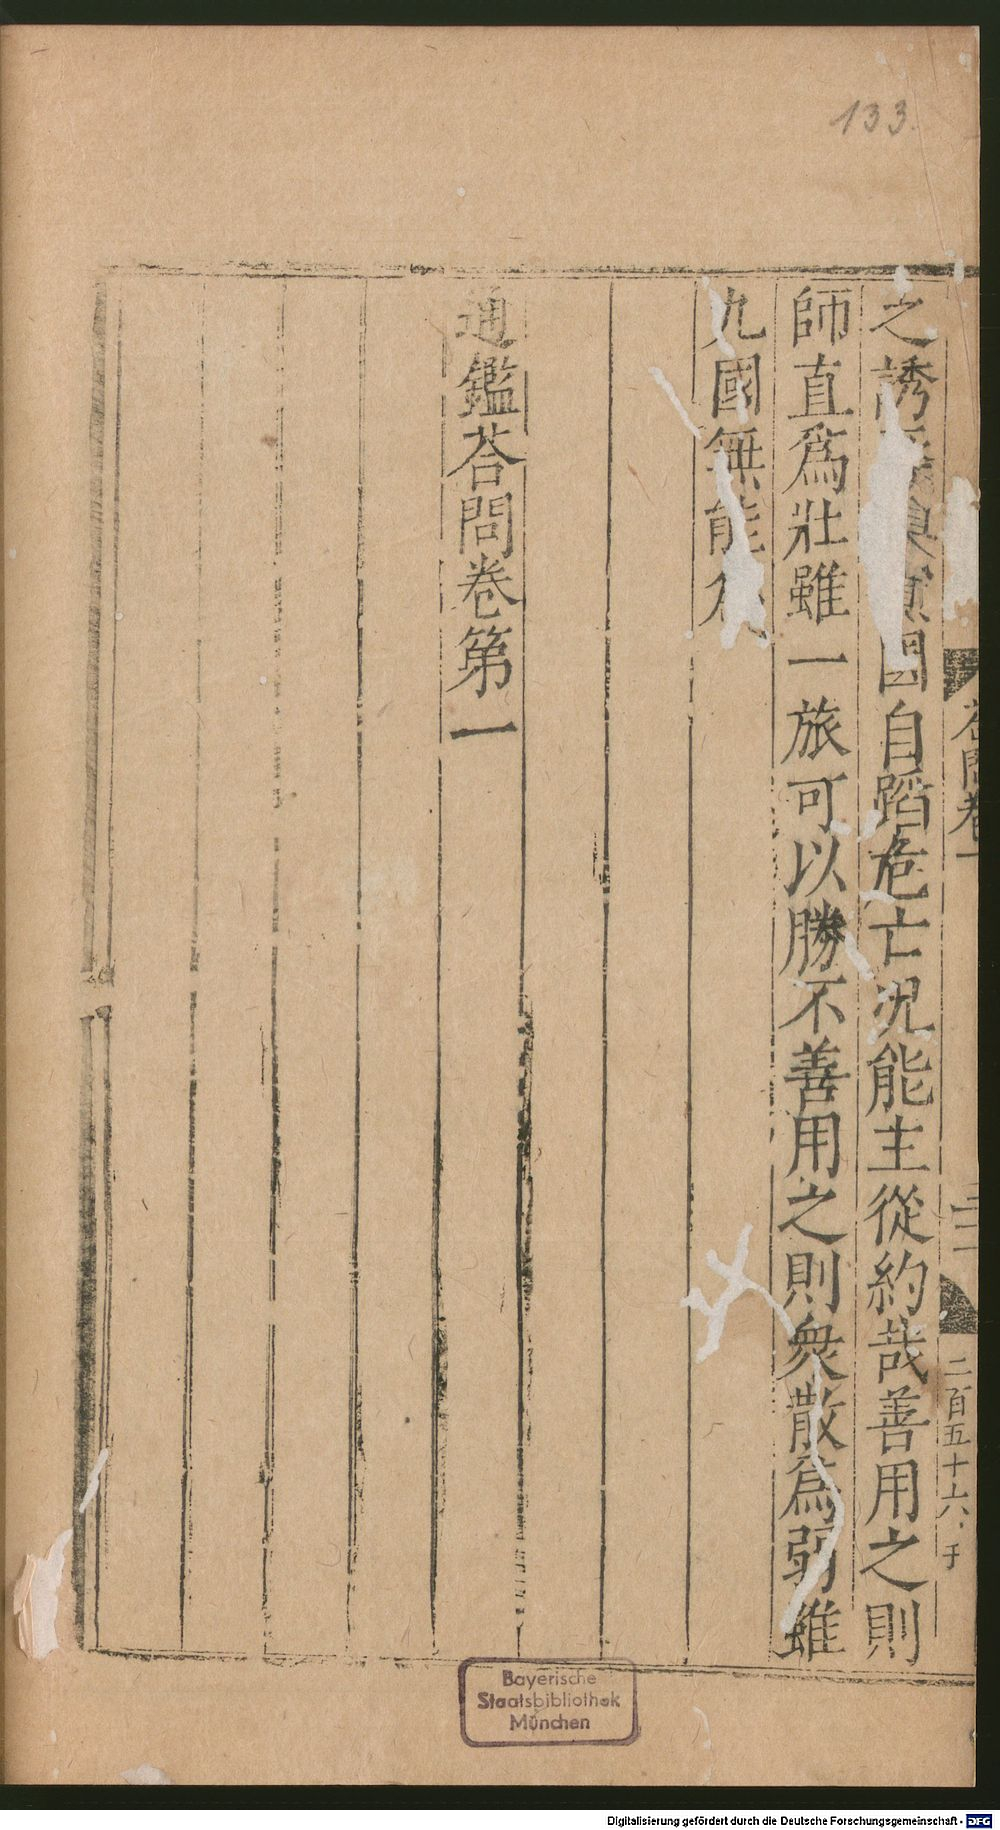 133.
荅問卷一
二百五十六 于
之誘國自蹈危亡况能主從約哉善用之則
師直爲壯雖一旅可以勝不善用之則衆散爲弱雖
九國無能爲
通鑑荅問卷第一
Bayerische
Staatsbibliothek
München
Digitalisierung gefördert durch die Deutsche Forschungsgemeinschaft - DFG